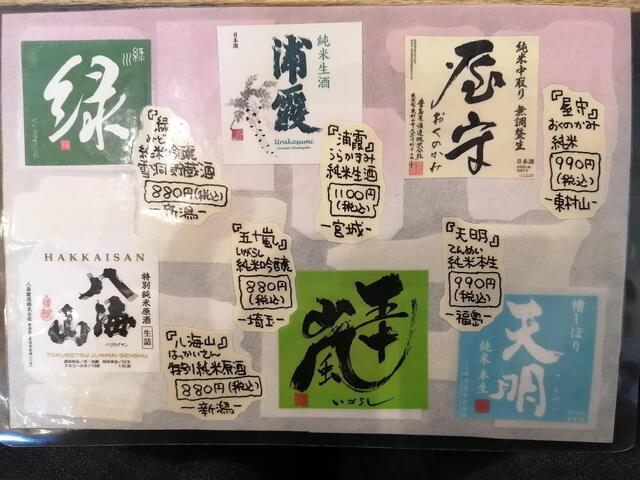 緑川
緑
『緑
純米吟醸
雪洞貯蔵酒
880円(税込)
-新潟-
日本酒
純米生酒
浦霞
Urakasumi
Junmai Namazake
『浦霞』
うらかすみ
純米生酒
1100円
(税込)
-宮城-
純米中取り 無調整生
屋守
おくのかみ
豊島屋酒造株式会社
日本酒
『屋守』
おくのかみ
純米
990円
(税込)
-東村山-
HAKKAISAN
特別純米原酒
生詰
八海山
ハッカイサン
八海醸造株式会社
TOKUBETSU JUNMAI GENSHU
『八海山』
はっかいさん
特別純米原酒
880円(税込)
-新潟-
『五十嵐』
いがらし
純米吟醸
880円
(税込)
-埼玉-
五十嵐
いがらし
『天明』
てんめい
純米本生
990円
(税込)
-福島-
槽しぼり
天明
純米 本生